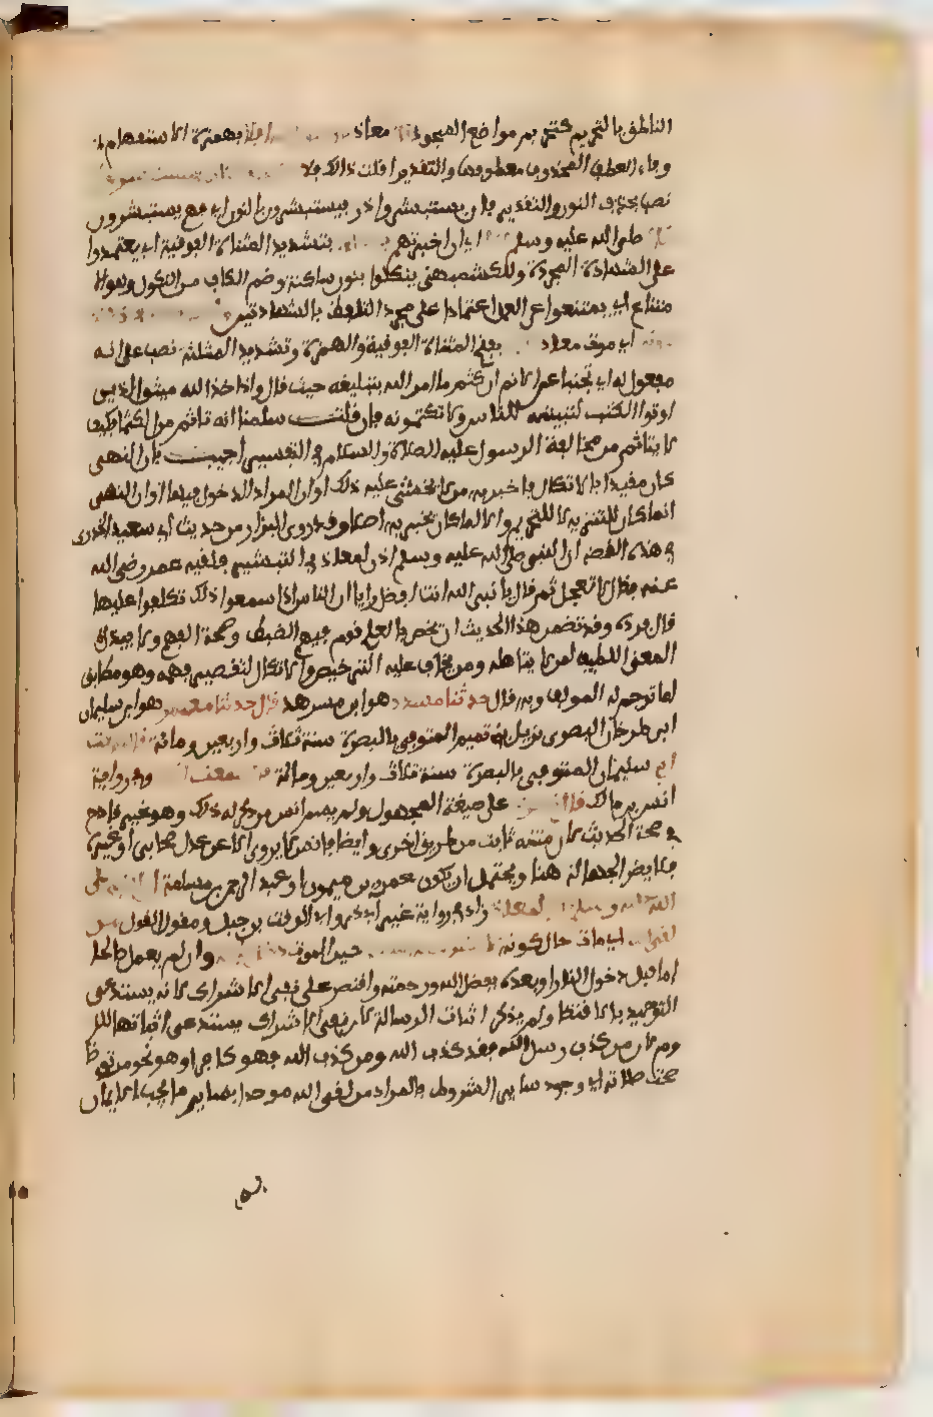 الناطق بالتحريم كتحريم مواضع السجود قال معاذ افلا بهمزة الاستفهام
وفاء العطف المحذوف معطوفها والتقدير اقلت ذلك فلا
نصب بحذف النون والتقدير فان يستبشروا وا في ذر يستبشرون بالنون اي فهم يستبشرون
صلى الله عليه وسلم اي ان اخبرتهم بتشديد المثناة الفوقية اي يعتمدوا
على الشهادة المجردة وللكشميهني ينكلوا بنون ساكنة وضم الكاف من النكول وهو الا
متناع اي يمتنعوا عن العمل اعتمادا على مجرد التلفظ بالشهادتين
موته اي موت معاذ بفتح المثناة الفوقية والهمزة وتشديد المثلثة نصب على انه
مفعول له اي تجنبا عن الاثم ان كتم ما امر الله بتبليغه حيث قال واذ اخذ الله ميثاق الذين
اوتوا الكتب لتبيننه للناس ولا تكتمونه فان قلت سلمنا انه تاثم من الكتمان فكيف
لا يتاثم من مخالفة الرسول عليه الصلاة والسلام في التبشير اجيب بان النهي
كان مفيدا بالاتكال فاخبر به من لا يخشى عليه ذلك او ان المراد الدخول فيها او ان النهي
انما كان للتنزيه لا للتحريم والا لما كان يخبر به اصلا وقد روى البزار من حديث ابي سعيد الخدري
في هذه القصة ان النبي صلى الله عليه وسلم اذن لمعاذ في التبشير فلقيه عمر رضي الله
عنه فقال لا تعجل ثم قال يا نبي الله انت افضل رايا ان الناس اذا سمعوا ذلك تكلموا عليها
قال فرده وقد تضمن هذا الحديث ان يخص بالعلم قوم فيهم الضبط وصحة الفهم ولا يبذل
المعنى اللطيف لمن لا يتاهله ومن يخاف عليه الترخيص والاتكال لتقصير فهمه وهو مطابق
لما ترجم له المولف وبه قال حدثنا مسدد هو ابن مسرهد قال حدثنا معتمر هو ابن سليمان
ابن طرخان البصري نزيل بني تميم المتوفى بالبصرة سنة ثلاث واربعين ومائة قال سمعت
ابي سليمان المتوفى بالبصرة سنة ثلاث واربعين ومائة وفي رواية
انس بن مالك قال على صيغة المجهول ولم يسم انس من ذكر له ذلك وهو غير قادح
في صحة الحديث لان متنه ثابت من طريق اخرى وايضا فانس لا يروي الا عن عدل صحابي او غيره
فلا يضر الجهالة هنا ويحتمل ان يكون عمرو بن ميمون او عبد الرحمن بن سلمة
الله عليه وسلم لمعاذ زاد في رواية غير ابي ذر وابي الوقت بن جبل ومقول القول من
لقي الله اي مات حال كونه حين الموت وان لم يعمل صالحا
اما قبل دخول النار او بعده بفضل الله ورحمته واقتصر على نفي الاشراك لانه يستدعي
التوحيد بالاقتضا ولم يذكر اثبات الرسالة لان نفي الاشراك يستدعي اثباتها للز
وم لان من كذب رسل الله فقد كذب الله ومن كذب الله فهو كافر او هو نحو من توضا
صحت صلاته اي وجود ساير الشروط فالمراد من لقي الله موحدا بساير ما يجب الايمان
به